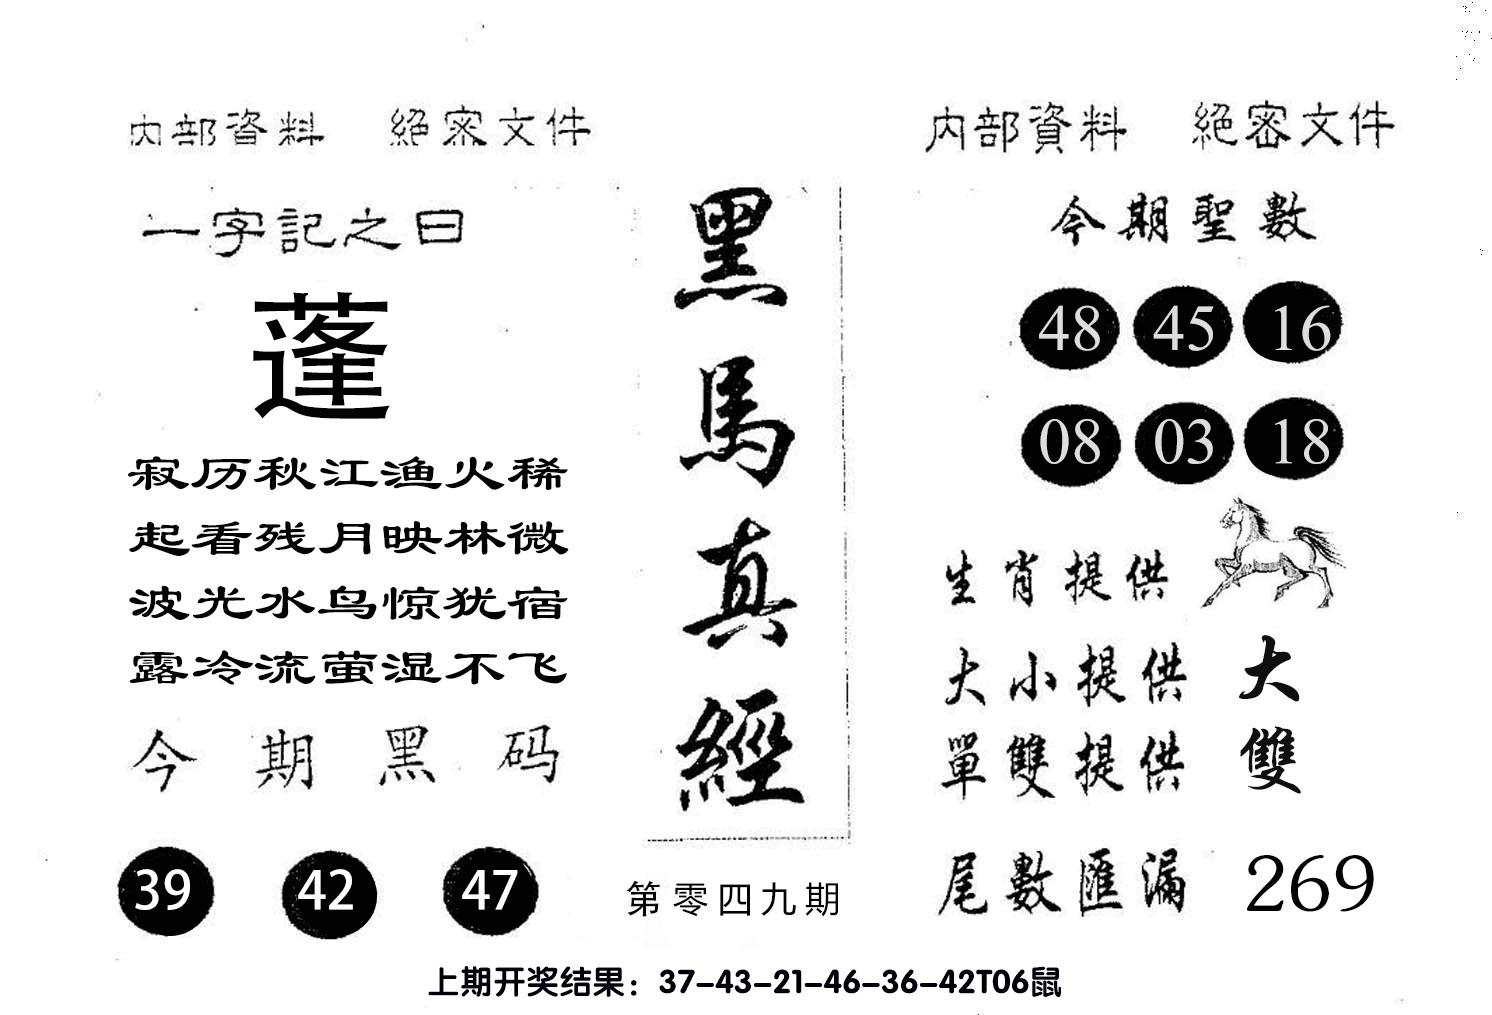 内部資料 絕密文件
一字記之曰
蓬
寂历秋江渔火稀
起看残月映林微
波光水鸟惊犹宿
露冷流萤湿不飞
今期黑码
39 42 47
黑馬真經
第零四九期
内部資料 絕密文件
今期聖數
48 45 16
08 03 18
生肖提供
大小提供 大
單雙提供 雙
尾數匯漏 269
上期开奖结果：37-43-21-46-36-42T06鼠